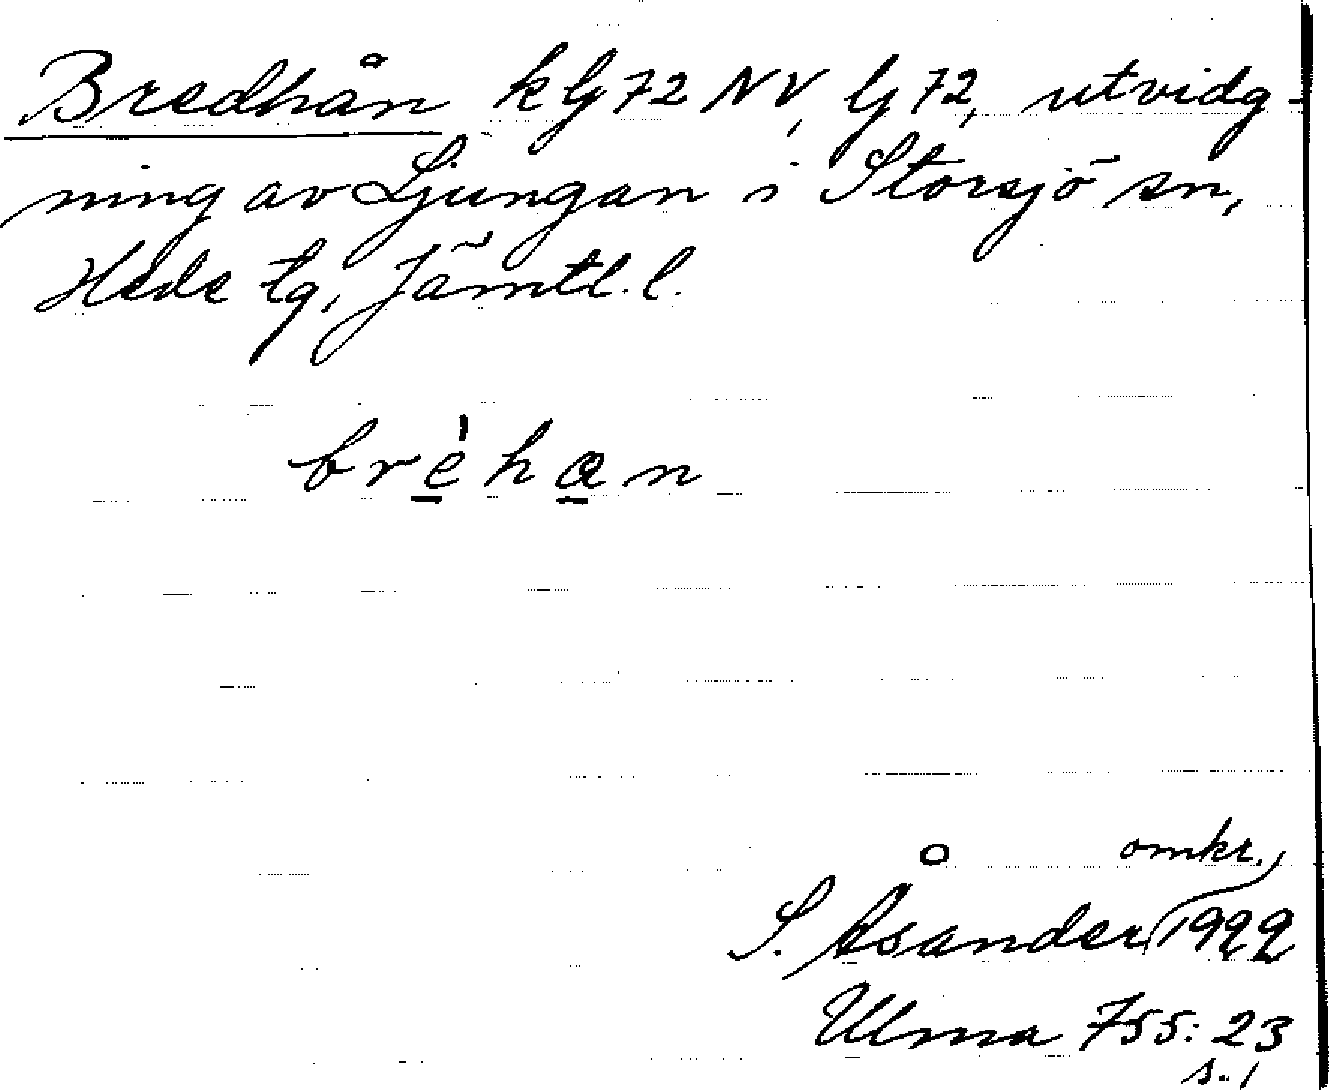 Bredhån k Lj 72 NV, Lj 72, utvidg-
ning av Ljungan i Storsjö sn,
Hede tg, Jämtl. l.
brèhan
omkr.
S. Åsander 1922
Ulma 755: 23
s. 1